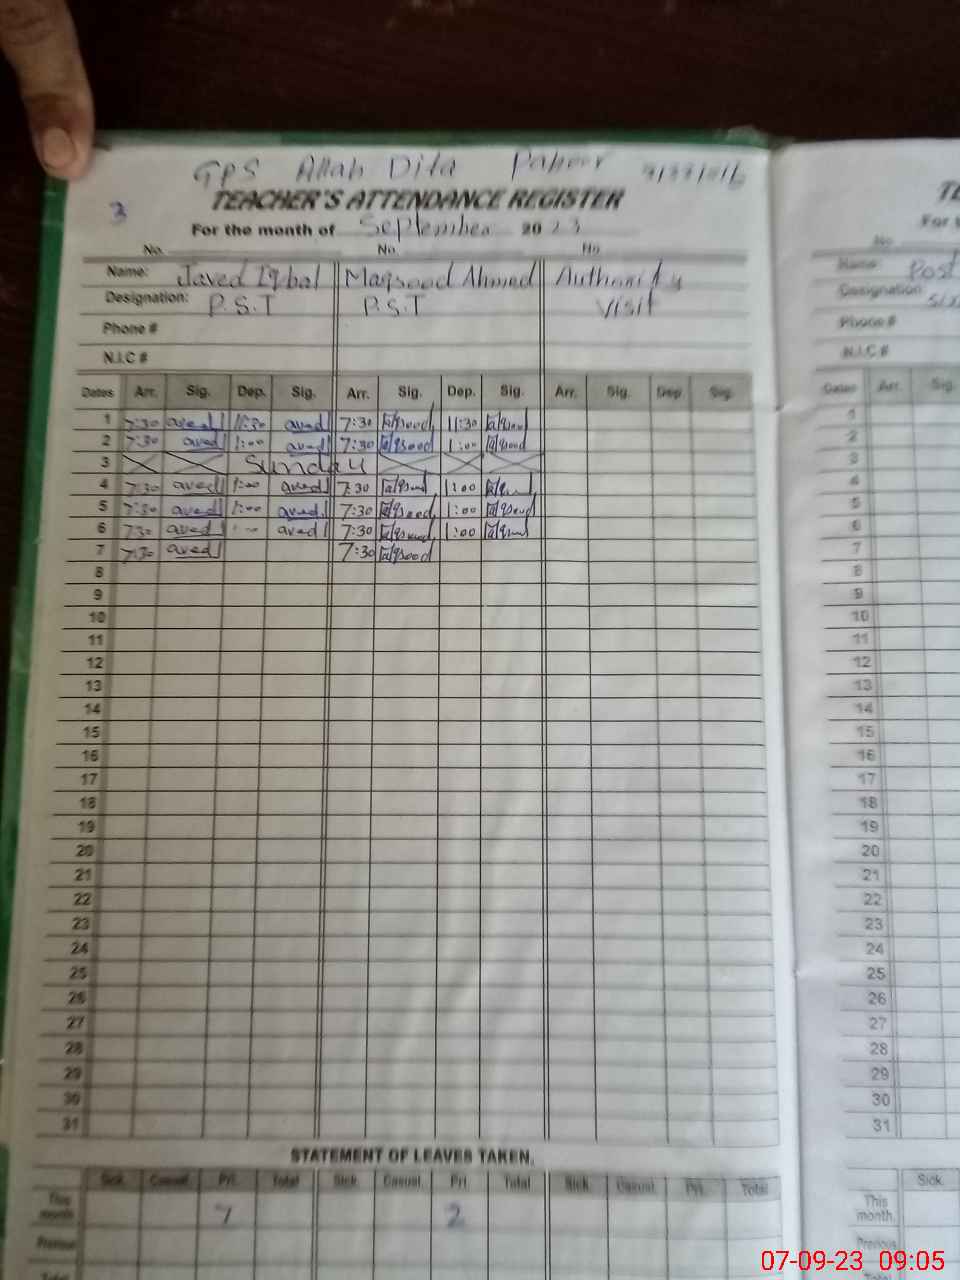 GPS Allah Dita
TEACHER'S ATTENDANCE REGISTER
3
For the month of September 2023
No. No. No.
Name: Javed Iqbal Maqsood Ahmed Authority
Designation: P.S.T P.S.T Visit
Phone #
N.I.C #
Dates Arr. Sig. Dep. Sig. Arr. Sig. Dep. Sig. Arr. Sig. Dep. Sig.
1 7:30 aved 11:30 aved 7:30 aqsood 11:30
2 7:30 aved 1:00 aved 7:30 aqsood 1:00 aqsood
3 Sunday
4 7:30 aved 1:00 aved 7:30 1:00
5 7:30 aved 1:00 aved 7:30 aqsood 1:00 aqsood
6 7:30 aved aved 7:30 aqsood 1:00
7 7:30 aved 7:30 aqsood
8
9
10
11
12
13
14
15
16
17
18
19
20
21
22
23
24
25
26
27
28
29
30
31
STATEMENT OF LEAVES TAKEN.
Sick. Casual. Pri. Total Sick. Casual. Pri. Total Sick. Casual. Pri. Total
This month. 7 2
Previous
Total
Name: Post
Designation
Phone #
N.I.C #
Dates Arr. Sig.
1
2
3
4
5
6
7
8
9
10
11
12
13
14
15
16
17
18
19
20
21
22
23
24
25
26
27
28
29
30
31
Sick.
This month.
Previous
07-09-23 09:05